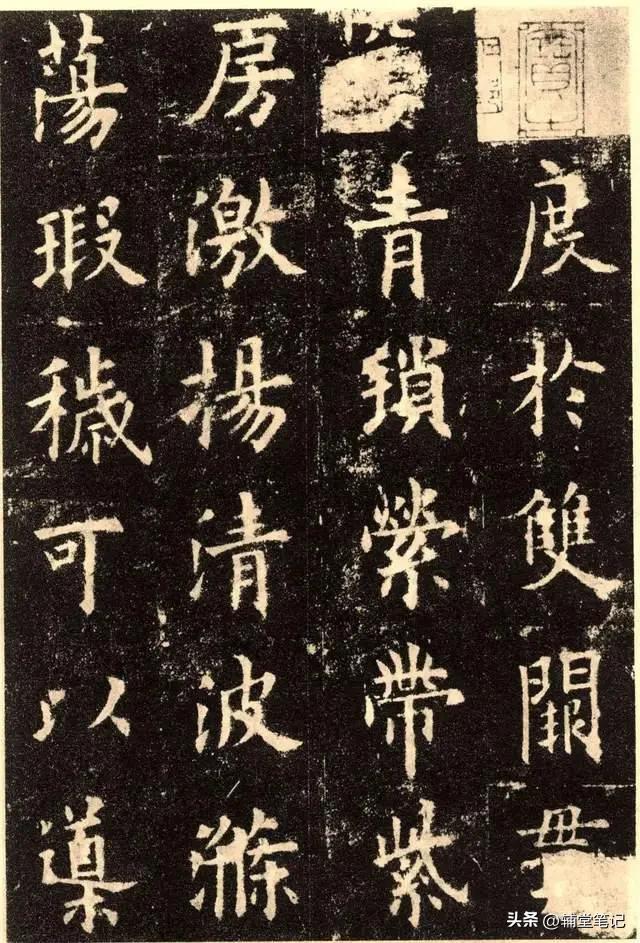 度於雙闕
青瑣縈帶紫
房激揚清波滌
蕩瑕穢可以導
头条 @辅堂笔记